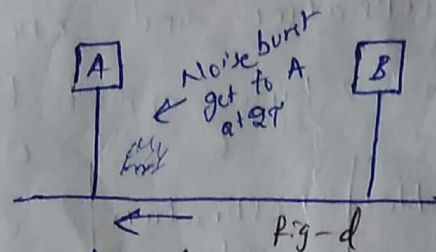 A
Noise burst
get to A
at 2τ
B
fig-d